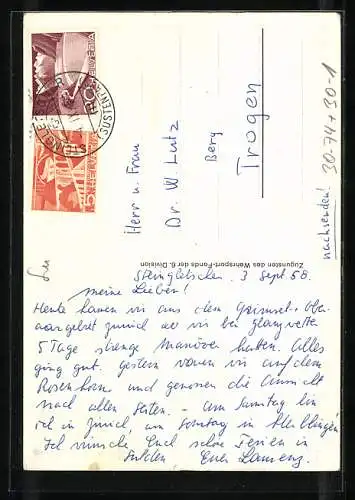 HELVETIA
5 HELVETIA
STEINGLETSCHER (SUSTEN)
Herr u. Frau
Dr. W. Lutz
Berg
Trogen
nachsenden!
30-74 + 30-1
Zugunsten des Wehrsport-Fonds der 6. Division
Steingletscher. 3 Sept 58.
meine Lieben!
Heute kamen wir aus dem Grimsel + Ober-
aargebiet zurück wo wir bei
5 Tage strenge Manöver hatten. Alles
ging gut. Gestern waren wir auf dem
Rosenhorn und genossen die Aussicht
nach allen Seiten. - am Samstag bin
ich in Zürich, am Sonntag in
Ich wünsche Euch schöne Ferien in
Sulden Euer Laurenz.